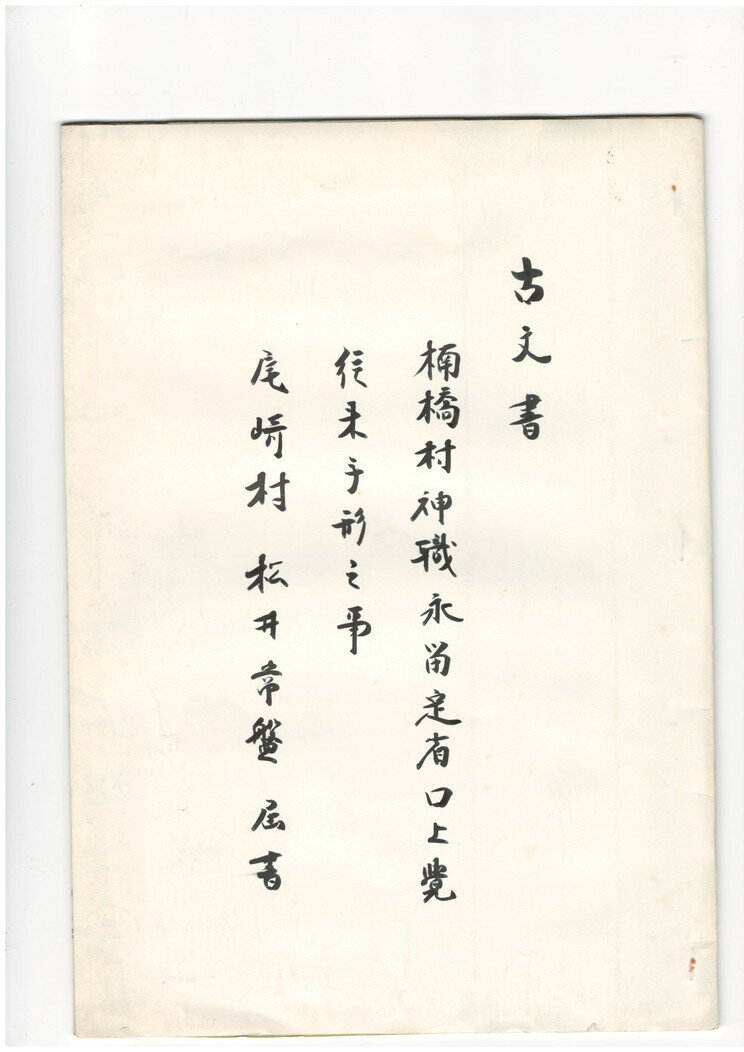 古文書
楠橋村神職永留定省口上覺
往来手形之事
尾崎村 松井常盤 届書